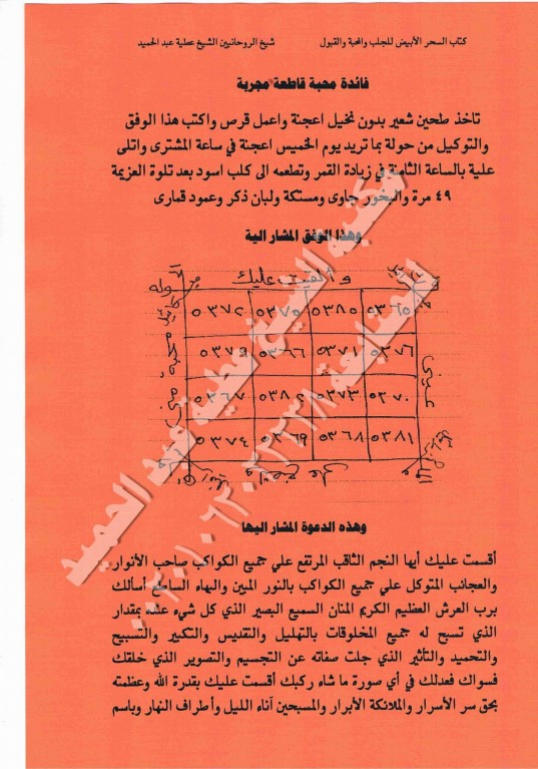 كتاب السحر الأبيض للجلب والمحبة والقبول
شيخ الروحانيين الشيخ عطية عبد الحميد
فائدة محبة قاطعة مجربة
تاخذ طحين شعير بدون نخيل اعجنة واعمل قرص واكتب هذا الوفق
والتوكيل من حولة بما تريد يوم الخميس اعجنة في ساعة المشترى واتلى
علية بالساعة الثامنة في زيادة القمر وتطعمه الى كلب اسود بعد تلاوة العزيمة
٤٩ مرة والبخور جاوى ومستكة ولبان ذكر وعمود قمارى
وهذا الوفق المشار الية
وألقيت عليك
محبة منى
ولتصنع على
عينى
٥٣٧٢ ٥٣٧٥ ٥٣٨٥ ٥٣٦٥
٥٣٧٩ ٥٣٦٦ ٥٣٧١ ٥٣٧٦
٥٣٦٧ ٥٣٨٢ ٥٣٧٣ ٥٣٧٠
٥٣٧٤ ٥٣٦٩ ٥٣٦٨ ٥٣٨١
وهذه الدعوة المشار اليها
أقسمت عليك أيها النجم الثاقب المرتفع علي جميع الكواكب صاحب الأنوار
والعجائب المتوكل علي جميع الكواكب بالنور المبين والبهاء الساطع أسألك
برب العرش العظيم الكريم المنان السميع البصير الذي كل شيء عنده بمقدار
الذي تسبح له جميع المخلوقات بالتهليل والتقديس والتكبير والتسبيح
والتحميد والتأثير الذي جلت صفاته عن التجسيم والتصوير الذي خلقك
فسواك فعدلك في أي صورة ما شاء ركبك أقسمت عليك بقدرة الله وعظمته
بحق سر الأسرار والملائكة الأبرار والمسبحين آناء الليل وأطراف النهار وباسم
مكتبة الشيخ عطية عبد الحميد
للمتابعة